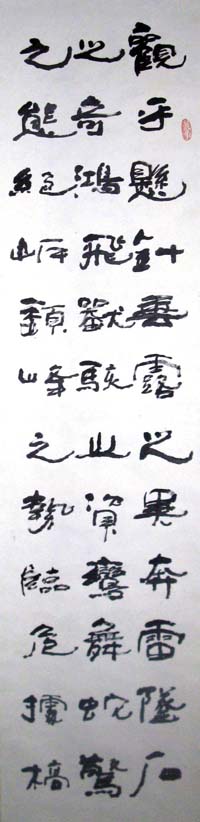 觀乎懸針垂露之異奔雷墜石
之奇鴻飛獸駭之資鸞舞蛇驚
之態絕岸頹峰之勢臨危據槁